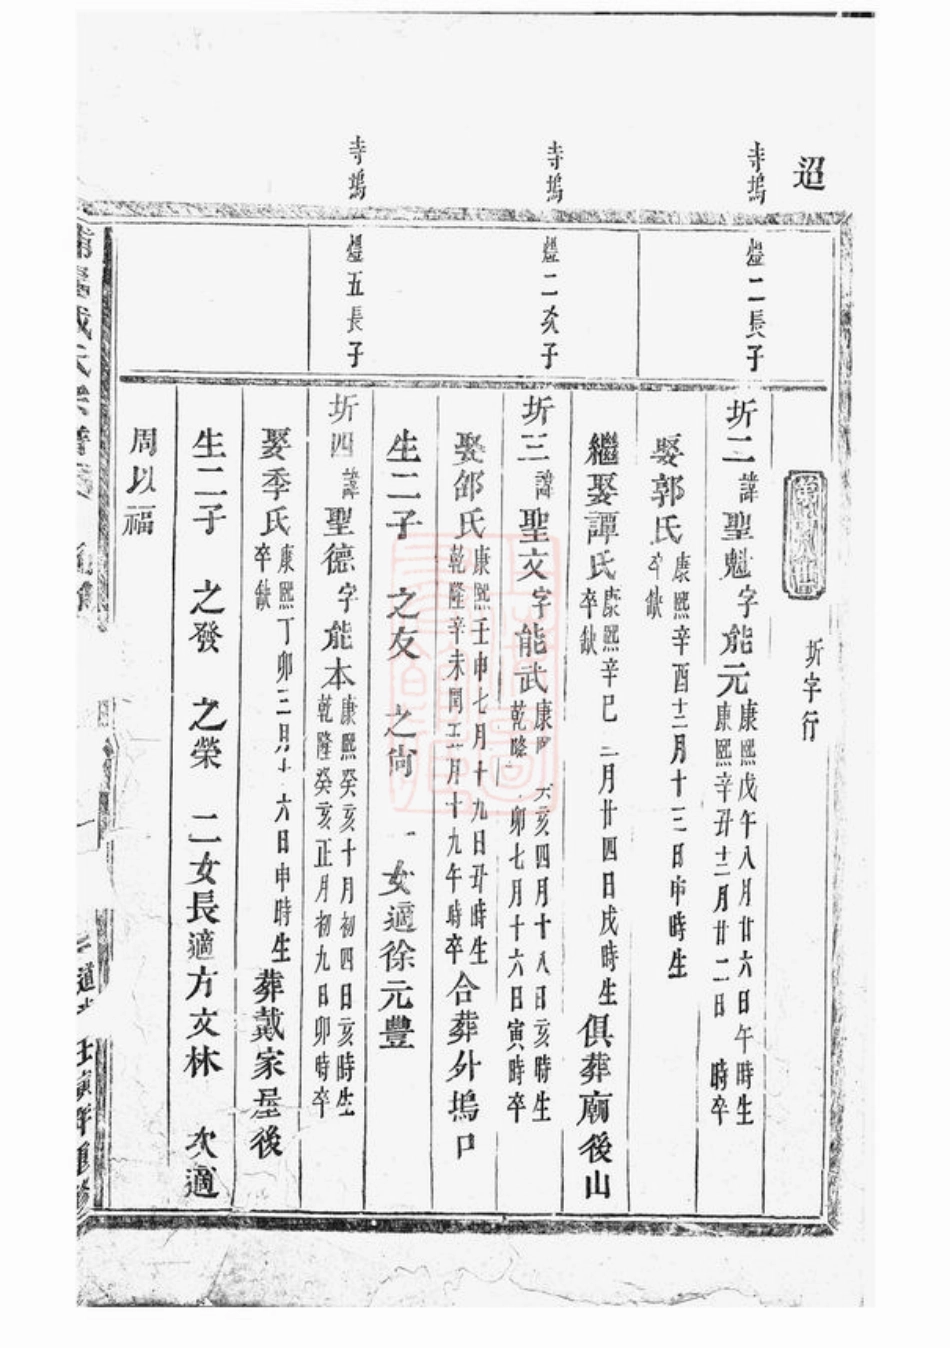 迢
寺塢
燈二長子
折字行
圻二諱聖魁字能元
康熙戊午八月廿六日午時生
康熙辛丑十二月廿二日 時卒
娶郭氏
康熙辛酉十二月十三日申時生
卒缺
繼娶譚氏
康熙辛巳二月廿四日戌時生
卒缺
俱葬廟後山
寺塢
燈二次子
圻三諱聖文字能武
康熙 亥四月十八日亥時生
乾隆 卯七月十六日寅時卒
娶邵氏
康熙壬申七月十九日丑時生
乾隆辛未閏五月十九午時卒
合葬外塢口
生二子 之友 之尚 一女適徐元豐
寺塢
燈五長子
圻四諱聖德字能本
康熙癸亥十月初四日亥時生
乾隆癸亥正月初九日卯時卒
娶季氏
康熙丁卯三月十六日申時生
卒缺
葬戴家屋後
生二子 之發 之榮 二女長適方文林 次適
周以福